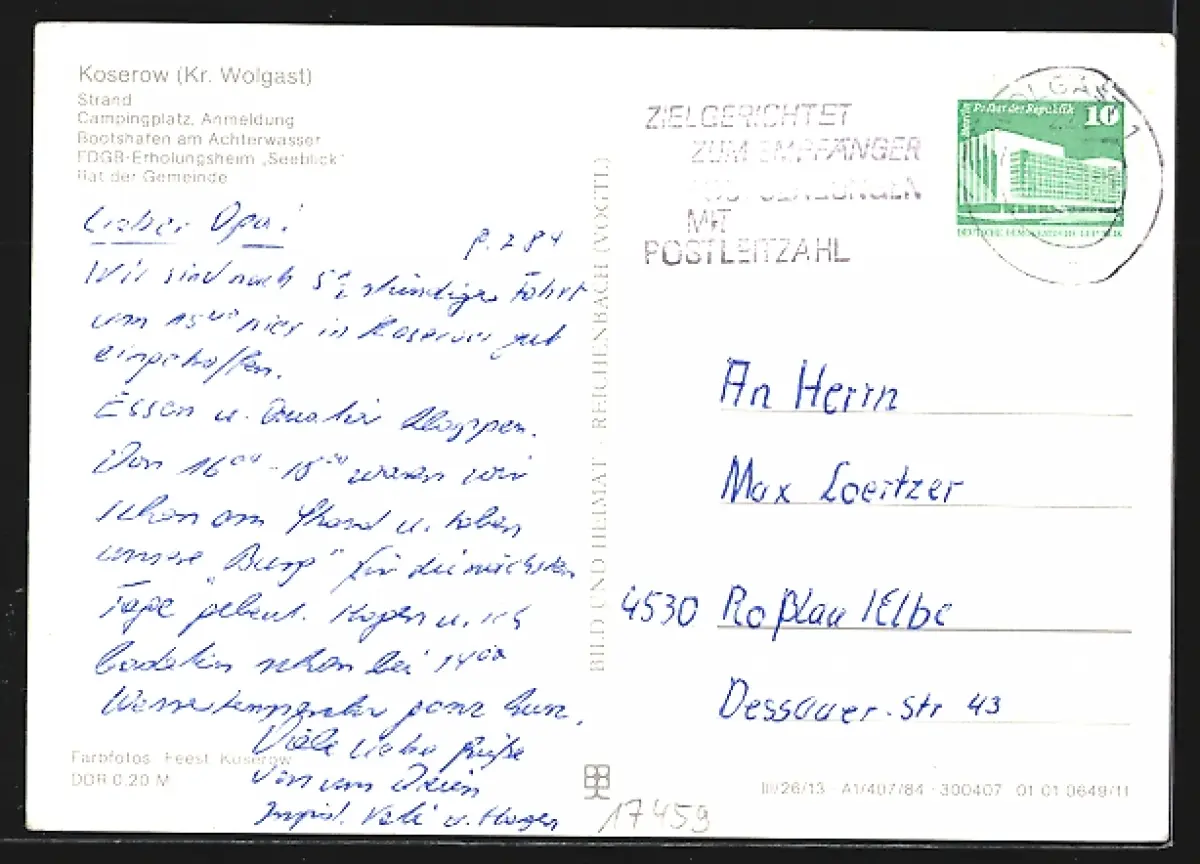 Koserow (Kr. Wolgast)
Strand
Campingplatz, Anmeldung
Bootshafen am Achterwasser
FDGB-Erholungsheim „Seeblick"
Rat der Gemeinde
Lieber Opa!
Wir sind nach 5 1/2 stündiger Fahrt
um 15 hier in Koserow gut
eingetroffen.
Essen u. Quatier klappen.
Von 16 - 18 waren wir
schon am Strand u. haben
unsere „Burg" für die nächsten
Tage gebaut. Hagen u. ich
badeten schon bei 14
Wassertemperatur ganz kurz.
Viele liebe Grüße
von uns Dreien
u. Hagen
Farbfotos: Feest, Koserow
DDR 0,20 M
BILD UND HEIMAT · REICHENBACH (VOGTL)
ZIELGERICHTET
ZUM EMPFÄNGER
MIT
POSTLEITZAHL
WOLGAST 1
Palast der Republik 10
DEUTSCHE DEMOKRATISCHE REPUBLIK
An Herrn
Max Loeitzer
4530 Roßlau/Elbe
Dessauer-Str 43
III/26/13 · A1/407/84 · 300407 01 01 0649/11
17459